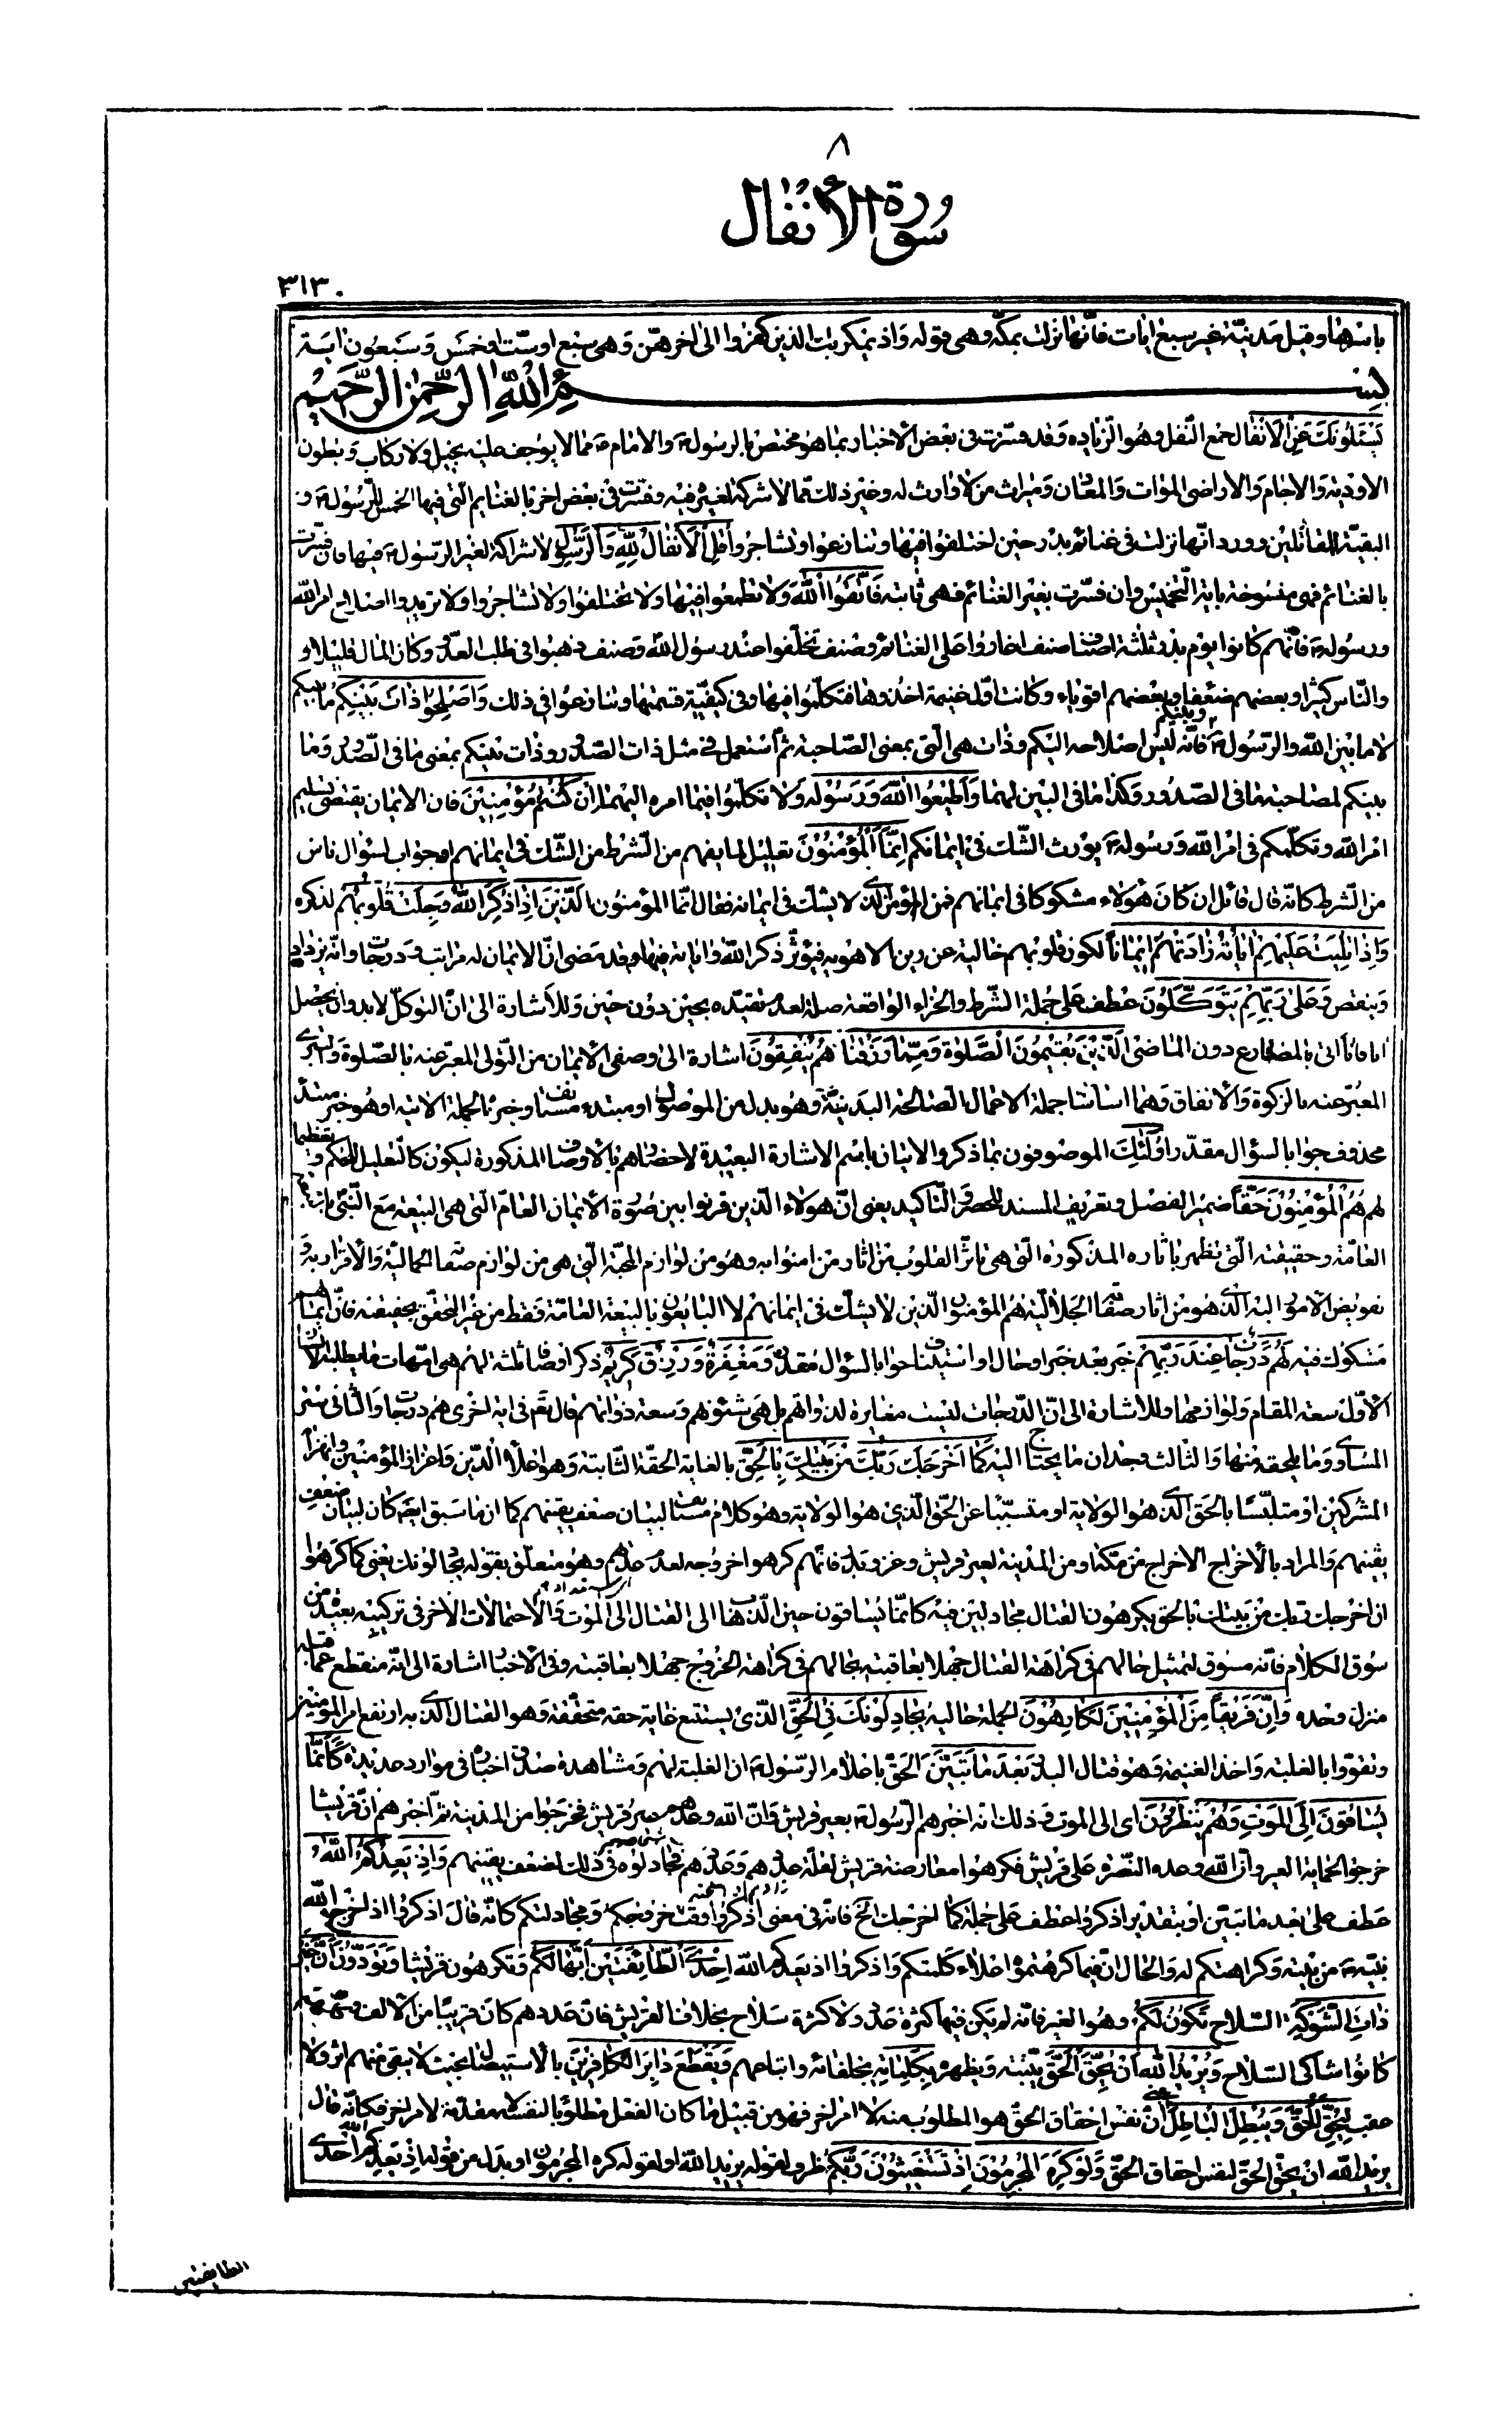 ٨
سورة الأنفال
٣١٣٠
باسرها وقيل مدنيّة غير سبع ايات فانّها نزلت بمكّة وهى قوله واذ يمكر بك الّذين كفروا الى اخرهنّ وهى سبع او ستّ او خمس وسبعون اية
بسم الله الرّحمن الرّحيم
يَسْئَلُونَكَ عَنِ الْاَنْفالِ جمع النّفل وهو الزّيادة وقد فسّرت فى بعض الاخبار بما هو مختصّ بالرسول ص والامام ع ممّا لا يوجف عليه بخيل ولا ركاب وبطون
الاودية والاجام والاراضى الموات والمعادن وميراث من لا وارث له وغير ذلك ممّا لا شركة لغيره فيه وفسّرت فى بعض اخر بالغنايم الّتى فيها الخمس للرّسول ص و
البقيّة للمقاتلين وورد انّها نزلت فى غنائم بدر حين اختلفوا فيها وتنازعوا وتشاجروا قُلِ الْاَنْفالُ لِلّهِ وَالرَّسُولِ لا شراكة لغير الرّسول ص فيها فان فسّرت
بالغنائم فهى منسوخة باية التّخميس وان فسّرت بغير الغنائم فهى ثابتة فَاتَّقُوا اللهَ ولا تطمعوا فيها ولا تختلفوا ولا تشاجروا ولا تريدوا اصلاح امر الله
ورسوله ص فانّهم كانوا يوم بدر ثلثة اصناف صنف اغاروا على الغنائم وصنف تخلّفوا عند رسول الله وصنف ذهبوا فى طلب العدوّ وكان المال قليلا و
والنّاس كثيرا وبعضهم ضعفاء وبعضهم اقوياء وكانت اوّل غنيمة اخذوها فتكلّموا فيها وفى كيفيّة قسمتها وتنازعوا فى ذلك وَاَصْلِحُوا ذاتَ بَيْنِكُمْ ما بينكم
لا ما بين الله والرّسول ص وبينكم فانّه ليس اصلاحه اليكم وذات هى الّتى بمعنى الصّاحبة ثمّ استعمل فى مثل ذات الصّدور وذات بينكم بمعنى ما فى الصّدور وما
بينكم لمصاحبة ما فى الصّدور وكذا ما فى البين لهما وَاَطيعُوا اللهَ وَرَسُولَهُ ولا تكلّموا فيما امره اليهما اِنْ كُنْتُمْ مُؤْمِنينَ فان الايمان يقتضى تسليم
امر الله وتكلّمكم فى امر الله ورسوله ص يورث الشّكّ فى ايمانكم اِنَّمَا الْمُؤْمِنُونَ تعليل لما يفهم من الشّرط من الشّكّ فى ايمانهم او جواب لسؤال ناش
من الشّرط كانّه قال قائل ان كان هؤلاء مشكوكا فى ايمانهم فمن المؤمن الّذى لا يشكّ فى ايمانه فقال انّما المؤمنون الَّذينَ اِذا ذُكِرَ اللهُ وَجِلَتْ قُلُوبُهُمْ لذكره
وَاِذا تُلِيَتْ عَلَيْهِمْ اياتُهُ زادَتْهُمْ ايمانًا لكون قلوبهم خالية عن رين الاهوية فيؤثّر ذكر الله واياته فيها وقد مضى انّ الايمان له مراتب ودرجات وانّه يزداد
وينقص وَعَلى رَبِّهِمْ يَتَوَكَّلُونَ عطف على جملة الشّرط والجزاء الواقعة صلة لعدم تقيّده بحين دون حين وللأشارة الى انّ التوكّل لابدّ وان يحصل
انا فانا اتى بالمضارع دون الماضى الَّذينَ يُقيمُونَ الصَّلوةَ وَمِمّا رَزَقْناهُمْ يُنْفِقُونَ اشارة الى وصفى الايمان من التّولّى المعبّر عنه بالصّلوة والتبرّى
المعبّر عنه بالزكوة والانفاق وهما اساسا جملة الاعمال الصّالحة البدنيّة وهو بدل من الموصول او مبتدء مستأنف وخبره الجملة الاتية او هو خبر مبتدء
محذوف جوابا لسؤال مقدّر اُولئِكَ الموصوفون بما ذكر والاتيان باسم الاشارة البعيدة لاحضارهم بالأوصاف المذكورة ليكون كالتّعليل للحكم وتعظيما
لهم هُمُ الْمُؤْمِنُونَ حَقًّا ضمير الفصل وتعريف المسند للحصر والتّاكيد يعنى انّ هؤلاء الّذين قرنوا بين صورة الايمان العامّ الّتى هى البيعة مع النّبىّ بالبيعة
العامّة وحقيقته الّتى تظهر باثاره المذكورة الّتى هى تاثّر القلوب من اثار من امنوا به وهو من لوازم المحبّة الّتى هى من لوازم صفاته الجماليّة والاقرار به و
تفويض الامور اليه الّذى هو من اثار صفاته الجلاليّة هم المؤمنون الّذين لا يشكّ فى ايمانهم لا البايعون بالبيعة العامّة فقط من غير التحقّق بحقيقته فانّ ايمانهم
مشكوك فيه لَهُمْ دَرَجاتٌ عِنْدَ رَبِّهِمْ خبر بعد خبر او حال او استيناف جوابا لسؤال مقدّر وَمَغْفِرَةٌ وَرِزْقٌ كَريمٌ ذكر اوصافا ثلثة لهم هى امّهات ما يطلبه الانسان
الأوّل سعة المقام ولوازمها وللاشارة الى انّ الدّرجات ليست مغايرة لذواتهم بل هى شئونهم وسعة ذواتهم قال تعم فى اية اخرى هم درجات والثّانى ستر
المساوى وما يلحقه منها والثالث وجدان ما يحتاج اليه كَما اَخْرَجَكَ رَبُّكَ مِنْ بَيْتِكَ بِالْحَقِّ بالغاية الحقّة الثّابتة وهو اعلاء الدّين واعزاز المؤمنين وانهزام
المشركين او متلبّسا بالحقّ الّذى هو الولاية او متسبّبا عن الحقّ الّذى هو الولاية وهو كلام مستأنف لبيان ضعف يقينهم كما ان ما سبق ايضا كان لبيان ضعف
يقينهم والمراد بالأخراج الاخراج من مكّة او من المدينة لعير قريش وغزو بدر فانّهم كرهوا خروجه لعدم عدّتهم وهو متعلّق بقوله يجادلونك يعنى كما كرهوا
ان اخرجك ربّك من بيتك بالحقّ يكرهون القتال مجادلين فيه كانّما يساقون حين الذّهاب الى القتال الى الموت والاحتمالات الاخر فى تركيبه بعيدة من
سوق الكلام فانّه مسوق لتمثيل حالهم فى كراهة القتال جهلا بعاقبته بحالهم فى كراهة الخروج جهلا بعاقبته وفى الأخبار اشارة الى انّه منقطع عمّا قبله
منزل وحده وَاِنَّ فَريقًا مِنَ الْمُؤْمِنينَ لَكارِهُونَ الجملة حاليّة يُجادِلُونَكَ فِى الْحَقِّ الّذى يستتبع غاية حقّه متحقّقة وهو القتال الّذى به ارتفع امر المؤمنين
وتقوّوا بالغلبة واخذ الغنيمة وهو قتال البدر بَعْدَ ما تَبَيَّنَ الحقّ باعلام الرّسول ص ان الغلبة لهم ومشاهدة صدق اخباره فى موارد عديدة كَاَنَّما
يُساقُونَ اِلَى الْمَوْتِ وَهُمْ يَنْظُرُونَ اى الى الموت وذلك انّه اخبرهم الرّسول ص بعير قريش وانّ الله وعدهم عير قريش فخرجوا من المدينة ثمّ اخبرهم انّ قريشا
خرجوا لحماية العير وانّ الله وعده النّصرة على قريش فكرهوا معارضة قريش لقلّة عددهم وعدّتهم فجادلوه فى ذلك لضعف يقينهم وَاِذْ يَعِدُكُمُ اللهُ
عطف على بعد ما تبيّن او بتقدير اذكروا عطف على جملة كما اخرجك الخ فانّه فى معنى اذكروا وقت خروجكم ومجادلتكم كانّه قال اذكروا اذ اخرج الله
نبيّه ص من بيته وكراهتكم له والحال انّ فيما كرهتموه اعلاء كلمتكم واذكروا اذ يعدكم الله اِحْدَى الطّائِفَتَيْنِ اَنَّها لَكُمْ وتكرهون قريشا وَتَوَدُّونَ اَنَّ غَيْرَ
ذاتِ الشَّوْكَةِ السّلاح تَكُونُ لَكُمْ وهو العير فانّه لم يكن فيها كثرة عدد ولا كثرة سلاح بخلاف القريش فانّ عددهم كان قريبا من الالف وكلّهم
كانوا شاكى السّلاح وَيُريدُ اللهُ اَنْ يُحِقَّ الْحَقَّ يثبته ويظهره بِكَلِماتِهِ بخلفائه واتباعهم وَيَقْطَعَ دابِرَ الْكافِرينَ بالأستيصال بحيث لا يبقى منهم اثر ولا
عقب لِيُحِقَّ الْحَقَّ وَيُبْطِلَ الْباطِلَ يعنى انّ نفس احقاق الحقّ هو المطلوب منه لا امر اخر فهو من قبيل ما كان الفعل مطلوبا لنفسه لا مقدّمة لامر اخر فكانّه قال
يريد الله ان يحقّ الحقّ لنفس احقاق الحقّ وَلَوْ كَرِهَ الْمُجْرِمُونَ اِذْ تَسْتَغيثُونَ رَبَّكُمْ ظرف لقوله يريد الله او لقوله كره المجرمون او بدل من قوله اذ يعدكم الله احدى
الطايفتين